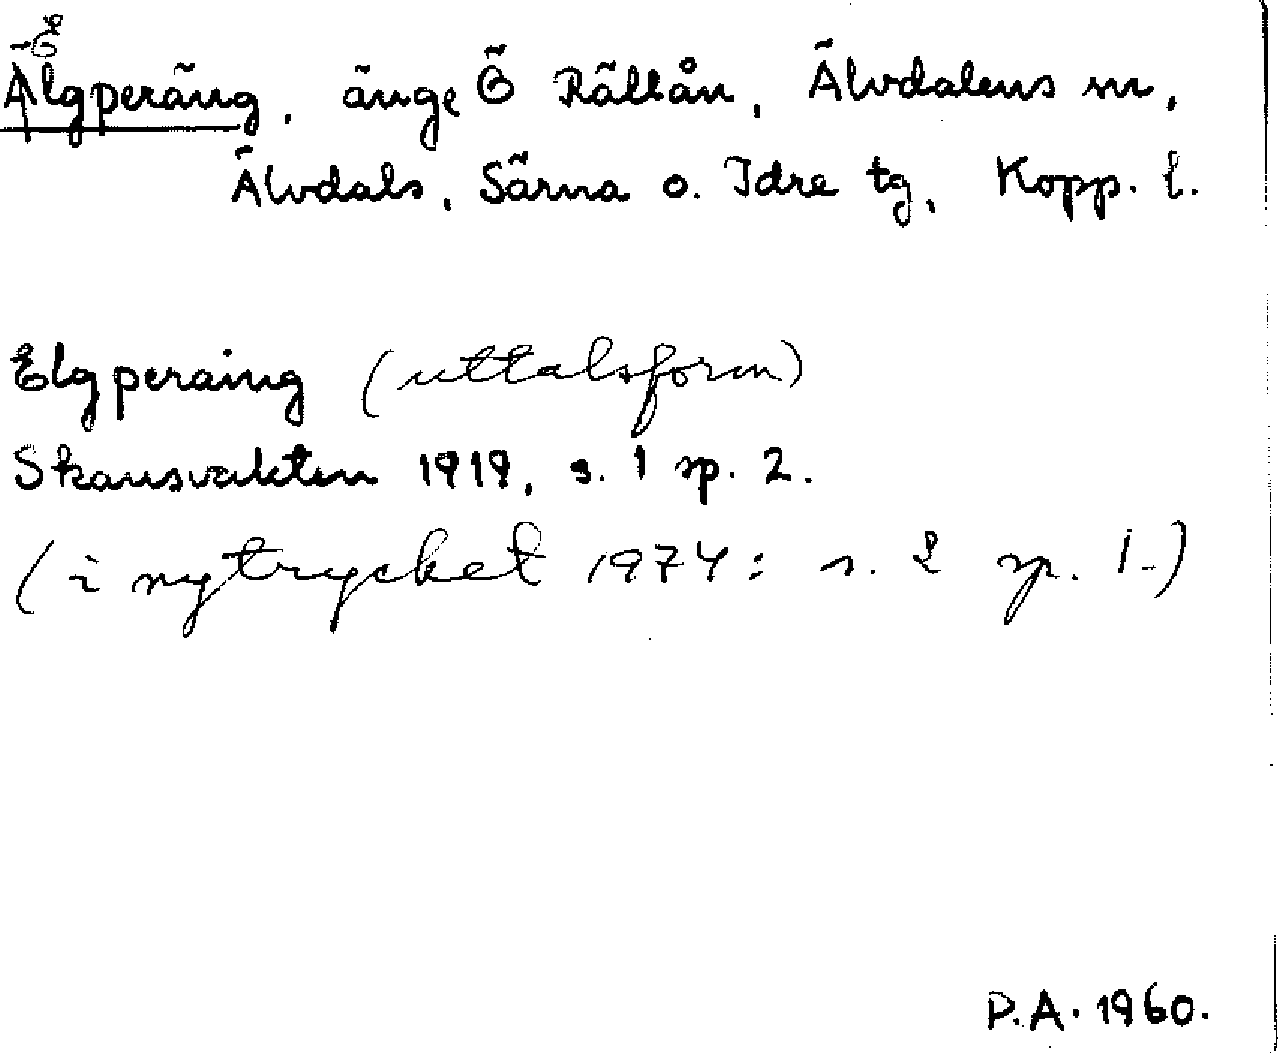 E
Älgperäng, änge Ö Rällån, Älvdalens sn,
Älvdals, Särna o. Idre tg, Kopp. l.
Elgperaing (uttalsform)
Skansvakten 1919, s. 1 sp. 2.
(i nytrycket 1974: s. 2 sp. 1.)
P.A. 1960.